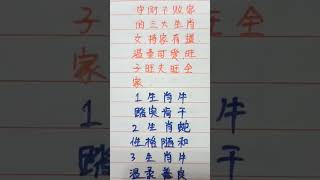 守财不败家
的三大生肖
女持家有道
温柔可爱旺
子旺夫旺全
家
1生肖牛
踏实肯干
2生肖蛇
性格随和
3生肖牛
温柔善良